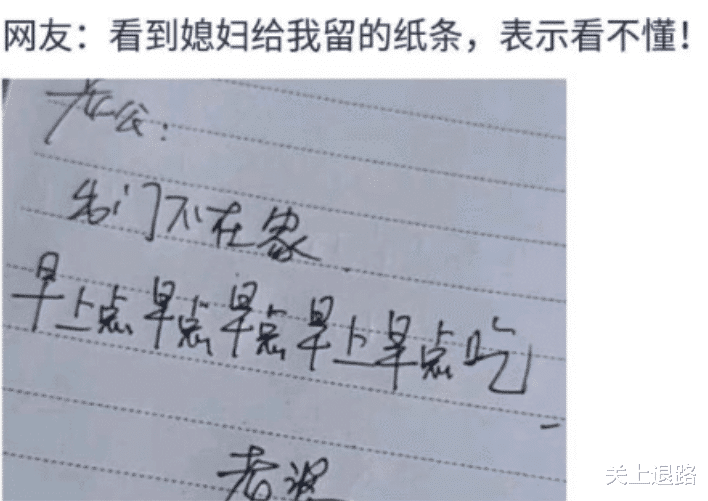 网友：看到媳妇给我留的纸条，表示看不懂！
老公：
出门不在家
早上点早点早点早上早点吃
老婆
关上退路